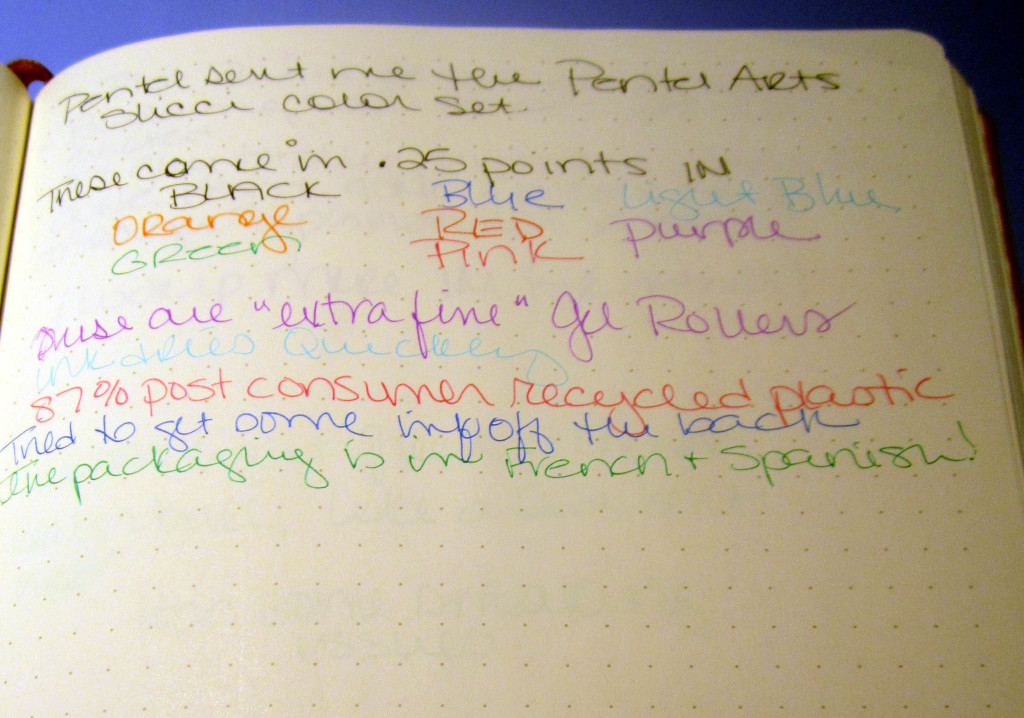 Pentel sent me the Pentel Arts
Slicci color set.
These come in .25 points IN
BLACK Blue Light Blue
Orange RED purple
GREEN Pink
These are "extra fine" Gel Rollers
ink dries Quickly
87% post consumer recycled plastic
Tried to get some info off the back
the packaging is in French + Spanish!